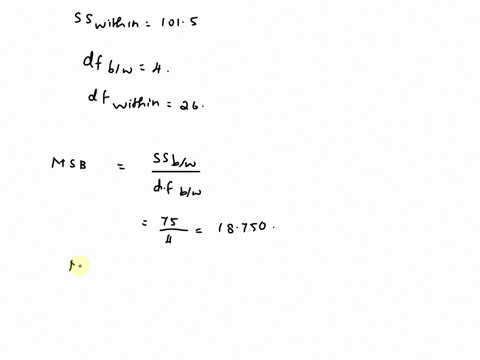 SS within = 101.5
df b/w = 4.
df within = 26.
MSB = SS b/w / d.f b/w
= 75 / 4 = 18.750.